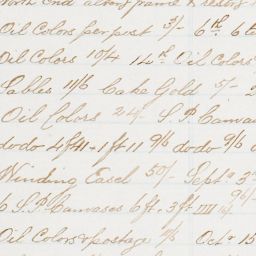 North End along frame & restg
Oil Colors per post 3/- 6th 6
Oil Colors 10/4 14th Oil Colors
Sables 11/6 Cake Gold 5/-
Oil Colors 24/- S.P. Canvas
do do 4ft 4 - 1ft 11 9/6 do do 9/6
Winding Easel 50/- Septr 3
6 S.P. Canvases 6ft. 3ft
Oil Colors & postage 9/6 Octr 15